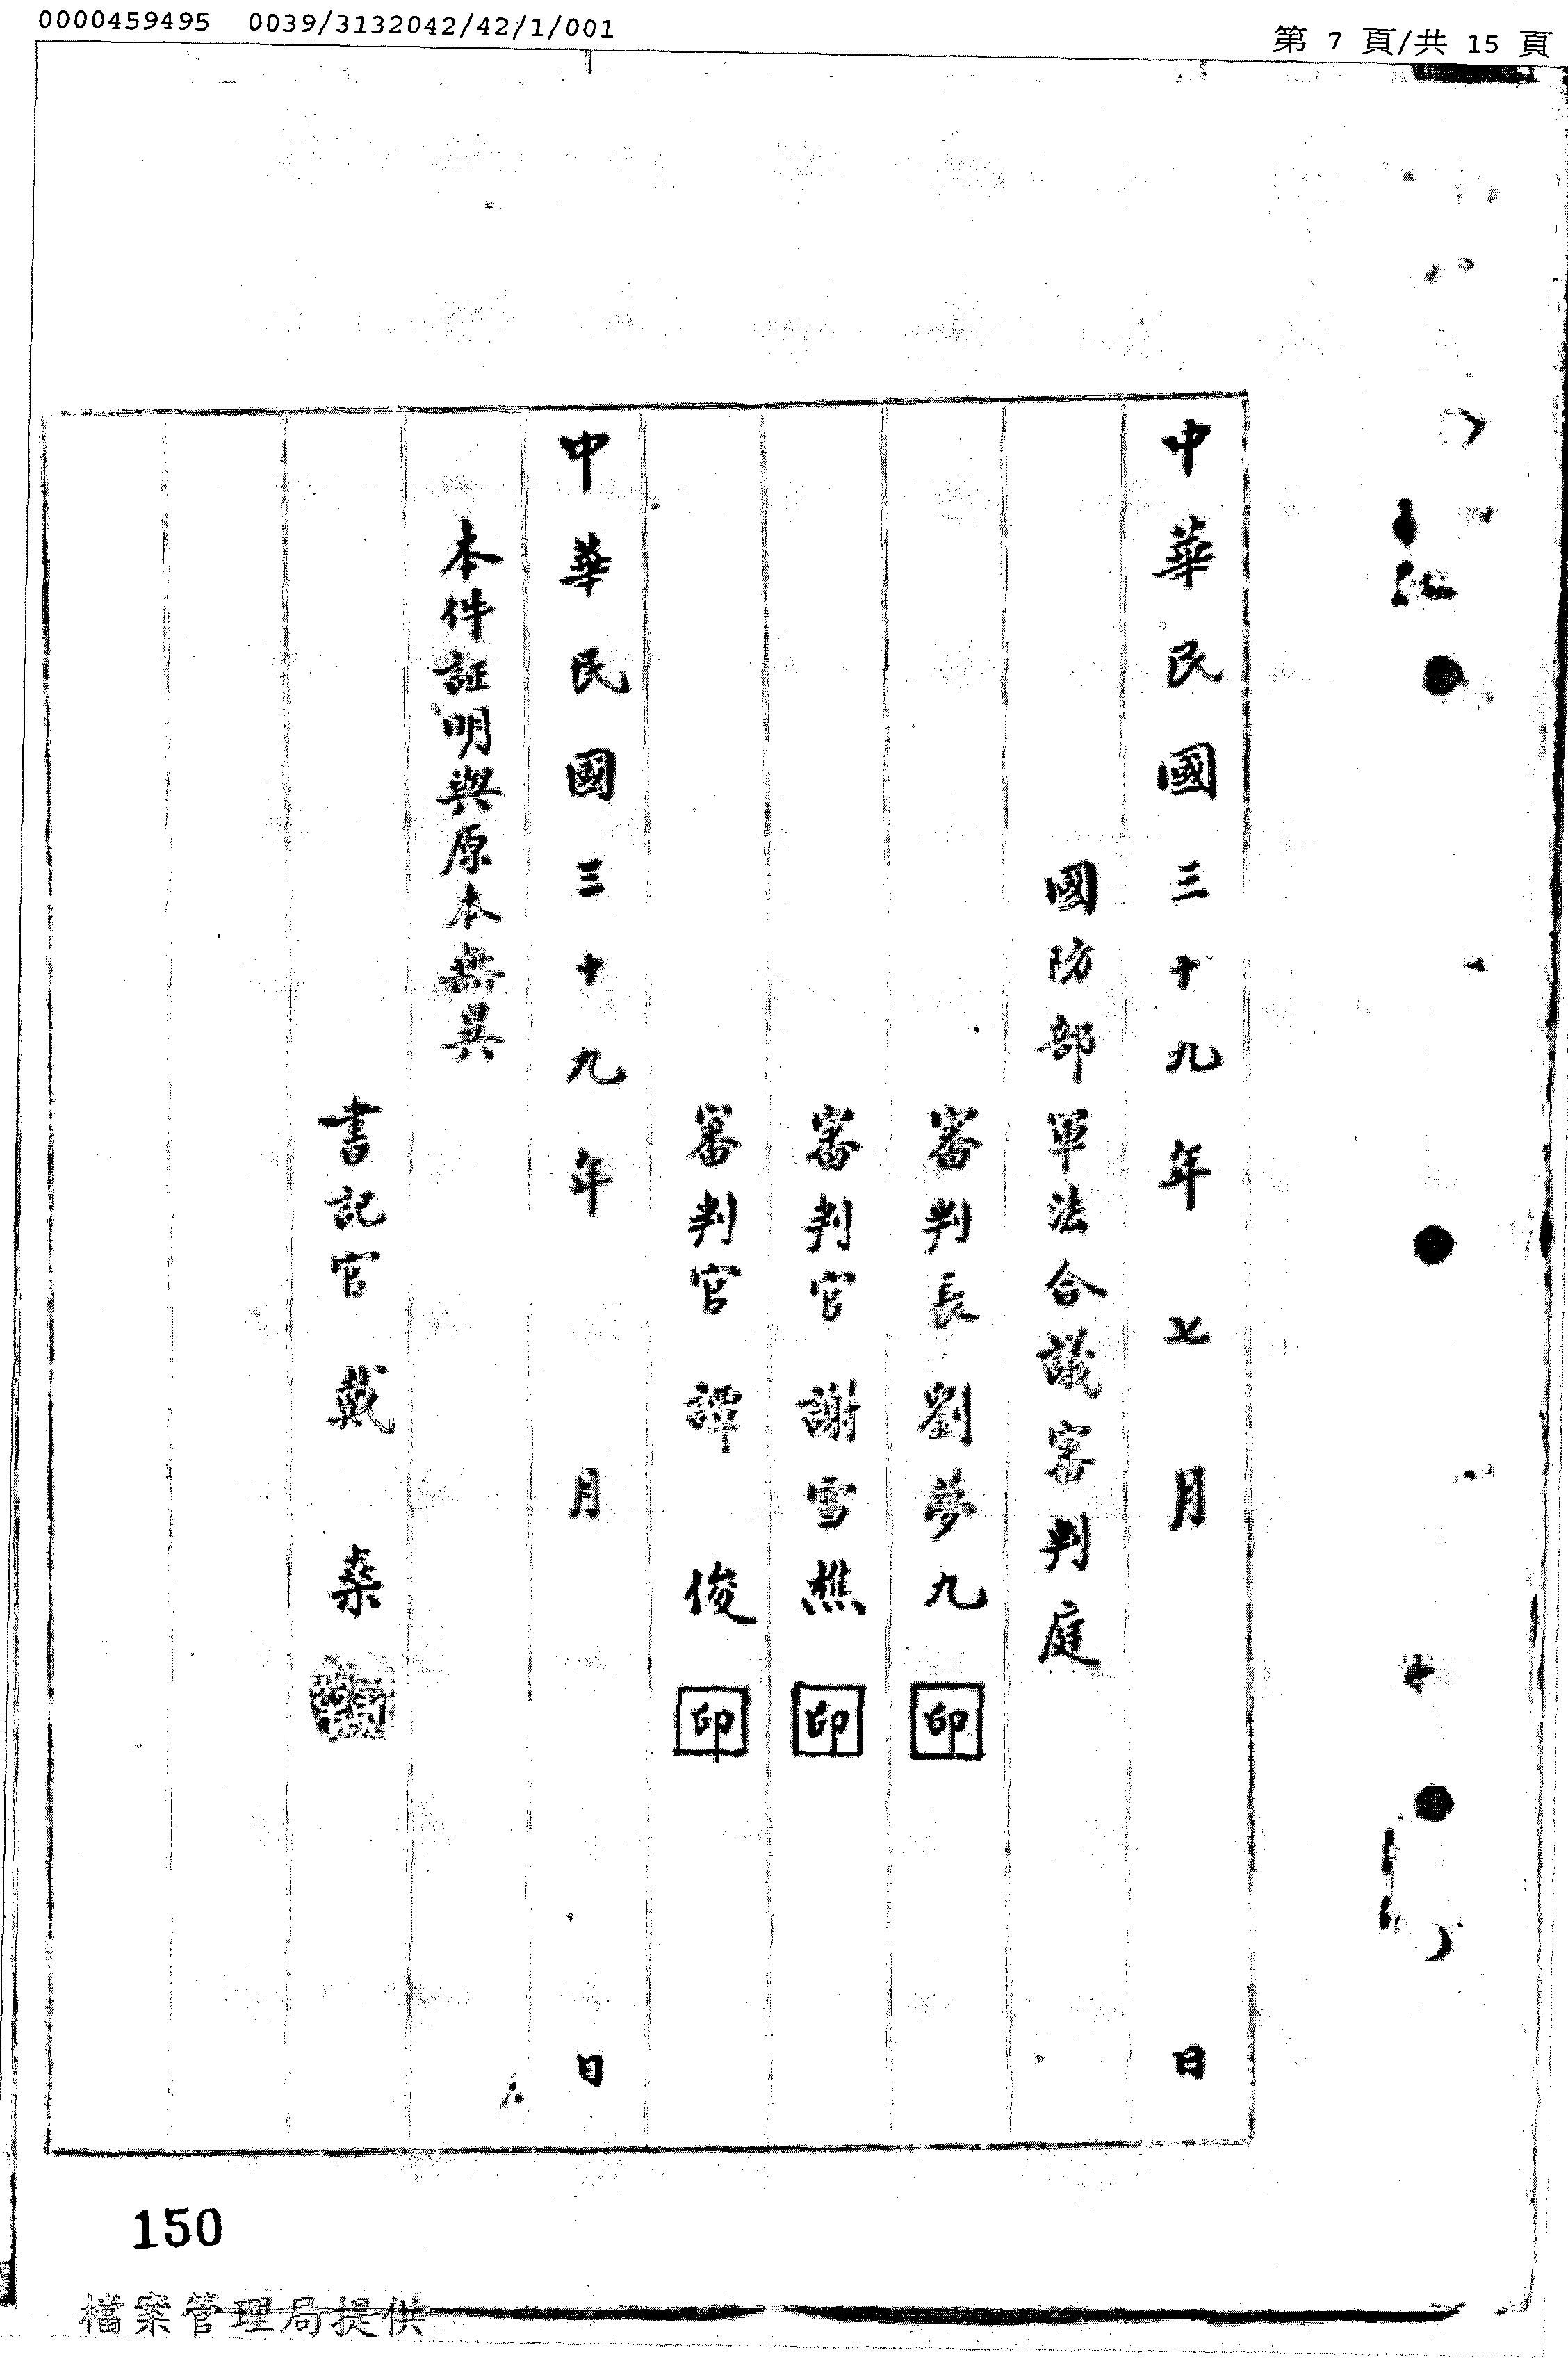 0000459495 0039/3132042/42/1/001
第 7 頁/共 15 頁
中華民國三十九年七月 日
國防部軍法合議審判庭
審判長劉夢九印
審判官謝雪樵印
審判官譚俊印
中華民國三十九年 月 日
本件証明與原本無異
書記官戴桑
150
檔案管理局提供